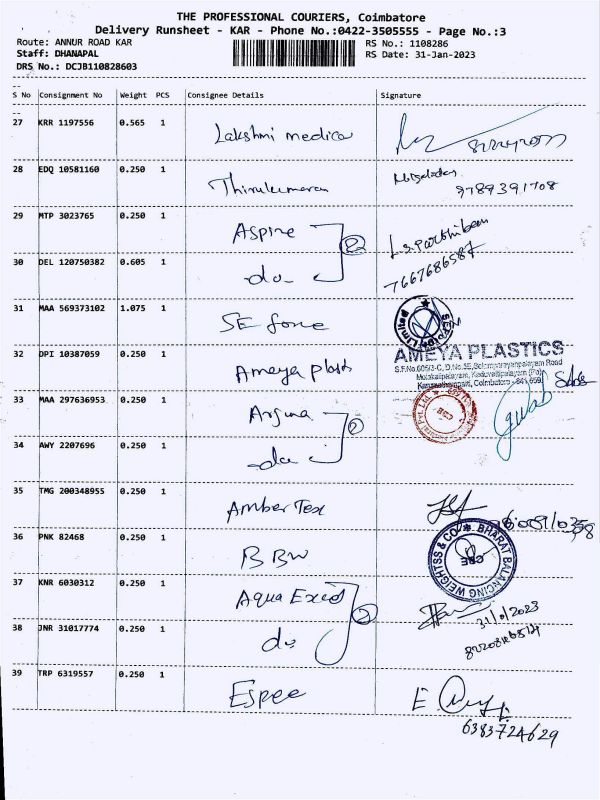 THE PROFESSIONAL COURIERS, Coimbatore
Delivery Runsheet - KAR - Phone No.:0422-3505555 - Page No.:3
Route: ANNUR ROAD KAR RS No.: 1108286
Staff: DHANAPAL RS Date: 31-Jan-2023
DRS No.: DCJB110828603
S No Consignment No Weight PCS Consignee Details Signature
27 KRR 1197556 0.565 1 Lakshmi medica
28 EDQ 10581160 0.250 1 Thirukumaran
9789391708
29 MTP 3023765 0.250 1 Aspire
2
L.S. Parthiban
30 DEL 120750382 0.605 1 do
7667686587
31 MAA 569373102 1.075 1 SE force
32 DPI 10387059 0.250 1 Ameya plasts
AMEYA PLASTICS
33 MAA 297636953 0.250 1 Arjuna
2
CBE
34 AWY 2207696 0.250 1 do
35 TMG 200348955 0.250 1 Amber Tex
36 PNK 82468 0.250 1 BBW
BHARAT BALANCING WEIGHTSS & CO.
CBE
37 KNR 6030312 0.250 1 Aqua Excel
2
31/1/2023
38 JNR 31017774 0.250 1 do
39 TRP 6319557 0.250 1 Espee
E.
6383724629